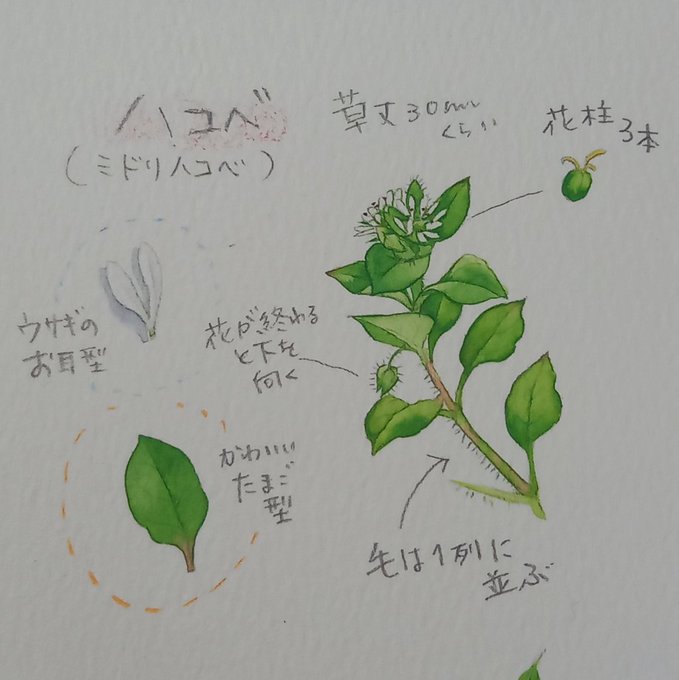 ハコベ
(ミドリハコベ)
草丈30mm
くらい
花柱
3本
ウサギの
お耳型
花が終わる
と下を
向く
かわいい
たまご
型
毛は1列に
並ぶ